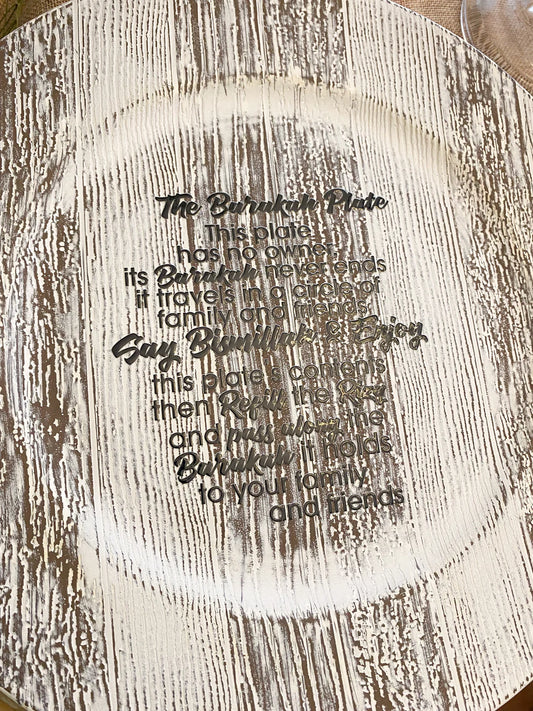 The Barakah Plate
This plate
has no owner,
its Barakah never ends
it travels in a circle of
family and friends
Say Bismillah & Enjoy
this plate's contents
then Refill the Rizq
and pass along the
Barakah it holds
to your family
and friends